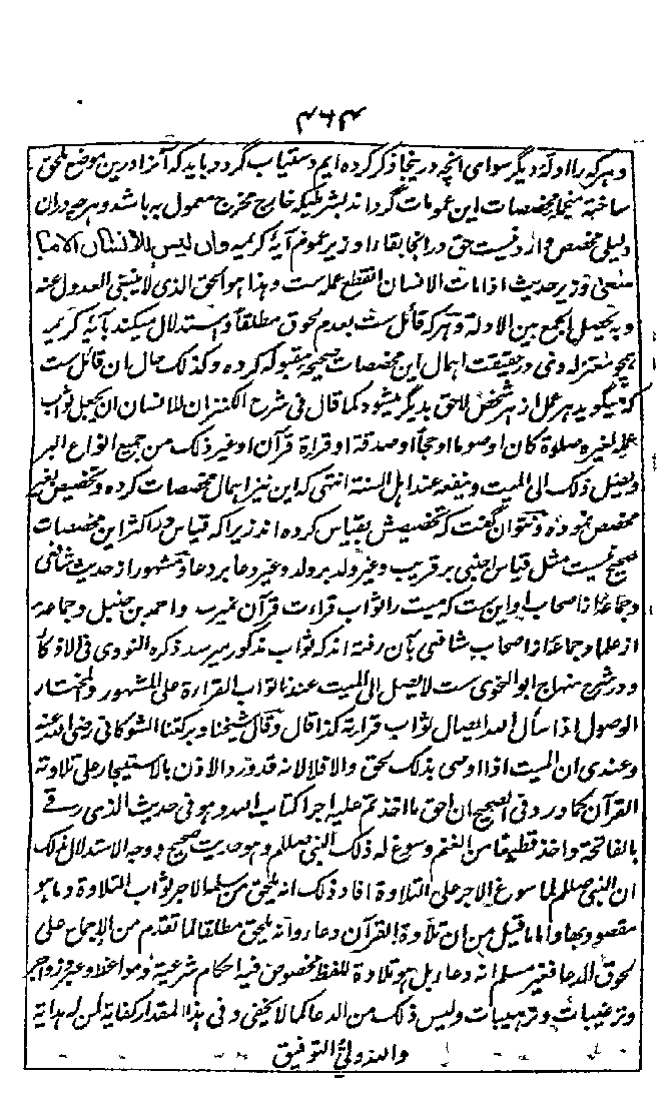 وهرکه را ادله دیگر سوای آنچه درینجا ذکر کرده ایم دستیاب گردد باید که آنرا درین موضع ملحق
ساخته منجمله مخصصات این عمومات گرداند بشرطیکه خارج مخرج معمول به باشد و هرچه دران
دلیلی مخصص وارد نیست حق درانجا بقاء او زیر عموم آیه کریمه وان لیس للانسان الا ما
سعی و زیر حدیث اذا مات الانسان انقطع عمله ست وهذا هو الحق الذی لا ینبغی العدول عنه
وبه یحصل الجمع بین الادلة و هرکه قائل ست بعدم لحوق مطلقاً و استدلال میکند بآیه کریمه
همچو معتزله وی در حقیقت اهمال این مخصصات صحیحه مقبوله کرده وکذلک حال ان قائل ست
که میگوید هر عمل از هر شخص لاحق بدیگر میشود کما قال فی شرح الکنز ان للانسان ان یجعل ثواب
عمله لغیره صلوة کان او صوما او حجاً او صدقة او قراءة قرآن او غیر ذلک من جمیع انواع البر
ویصل ذلک الی المیت وینفعه عند اهل السنة انتهی که این نیز اهمال مخصصات کرده و تخصیص بغیر
مخصص نموده و نتوان گفت که تخصیصش بقیاس کرده اند زیرا که قیاس در اکثر این مخصصات
صحیح نیست مثل قیاس اجنبی بر قریب و غیر ولد بر ولد و غیر دعا بر دعا و مشهور از حدیث شافعی
و جماعة از اصحاب او این ست که میت را ثواب قراءت قرآن نمیرسد و احمد بن حنبل و جماعه
از علما و جماعة از اصحاب شافعی بآن رفته اند که ثواب مذکور میرسد ذکره النووی فی الاذکار
و در شرح منهاج ابو النحوی ست لا یصل الی المیت عندنا ثواب القراءة علی المشهور والمختار
الوصول اذا سأل الله ایصال ثواب قراءته کذا قال وقال شیخنا وبرکتنا الشوکانی رضی الله عنه
وعندی ان المیت اذا اوصی بذلک لحق والا فلا لانه قد ورد الاذن بالاستیجار علی تلاوة
القرآن کما ورد فی الصحیح ان احق ما اخذتم علیه اجرا کتاب الله وهو فی حدیث الذی رقی
بالفاتحة واخذ قطیعا من الغنم وسوغ له ذلک النبی صللم وهو حدیث صحیح ووجه الاستدلال بذلک
ان النبی صللم لما سوغ الاجر علی التلاوة افاد ذلک انه یلحق من سلم الاجر ثواب التلاوة وما هو
مقصود بها واما ما قیل من ان تلاوة القرآن دعاء وانه یلحق مطلقا لما تقدم من الاجماع علی
لحوق الدعا فغیر مسلم انه دعاء بل هو تلاوة للفظ مخصوص فیه احکام شرعیة ومواعظ وعبر وزواجر
وترغیبات وترهیبات ولیس ذلک من الدعا کما لا یخفی وفی هذا المقدار کفایة لمن له هدایة
والله ولی التوفیق